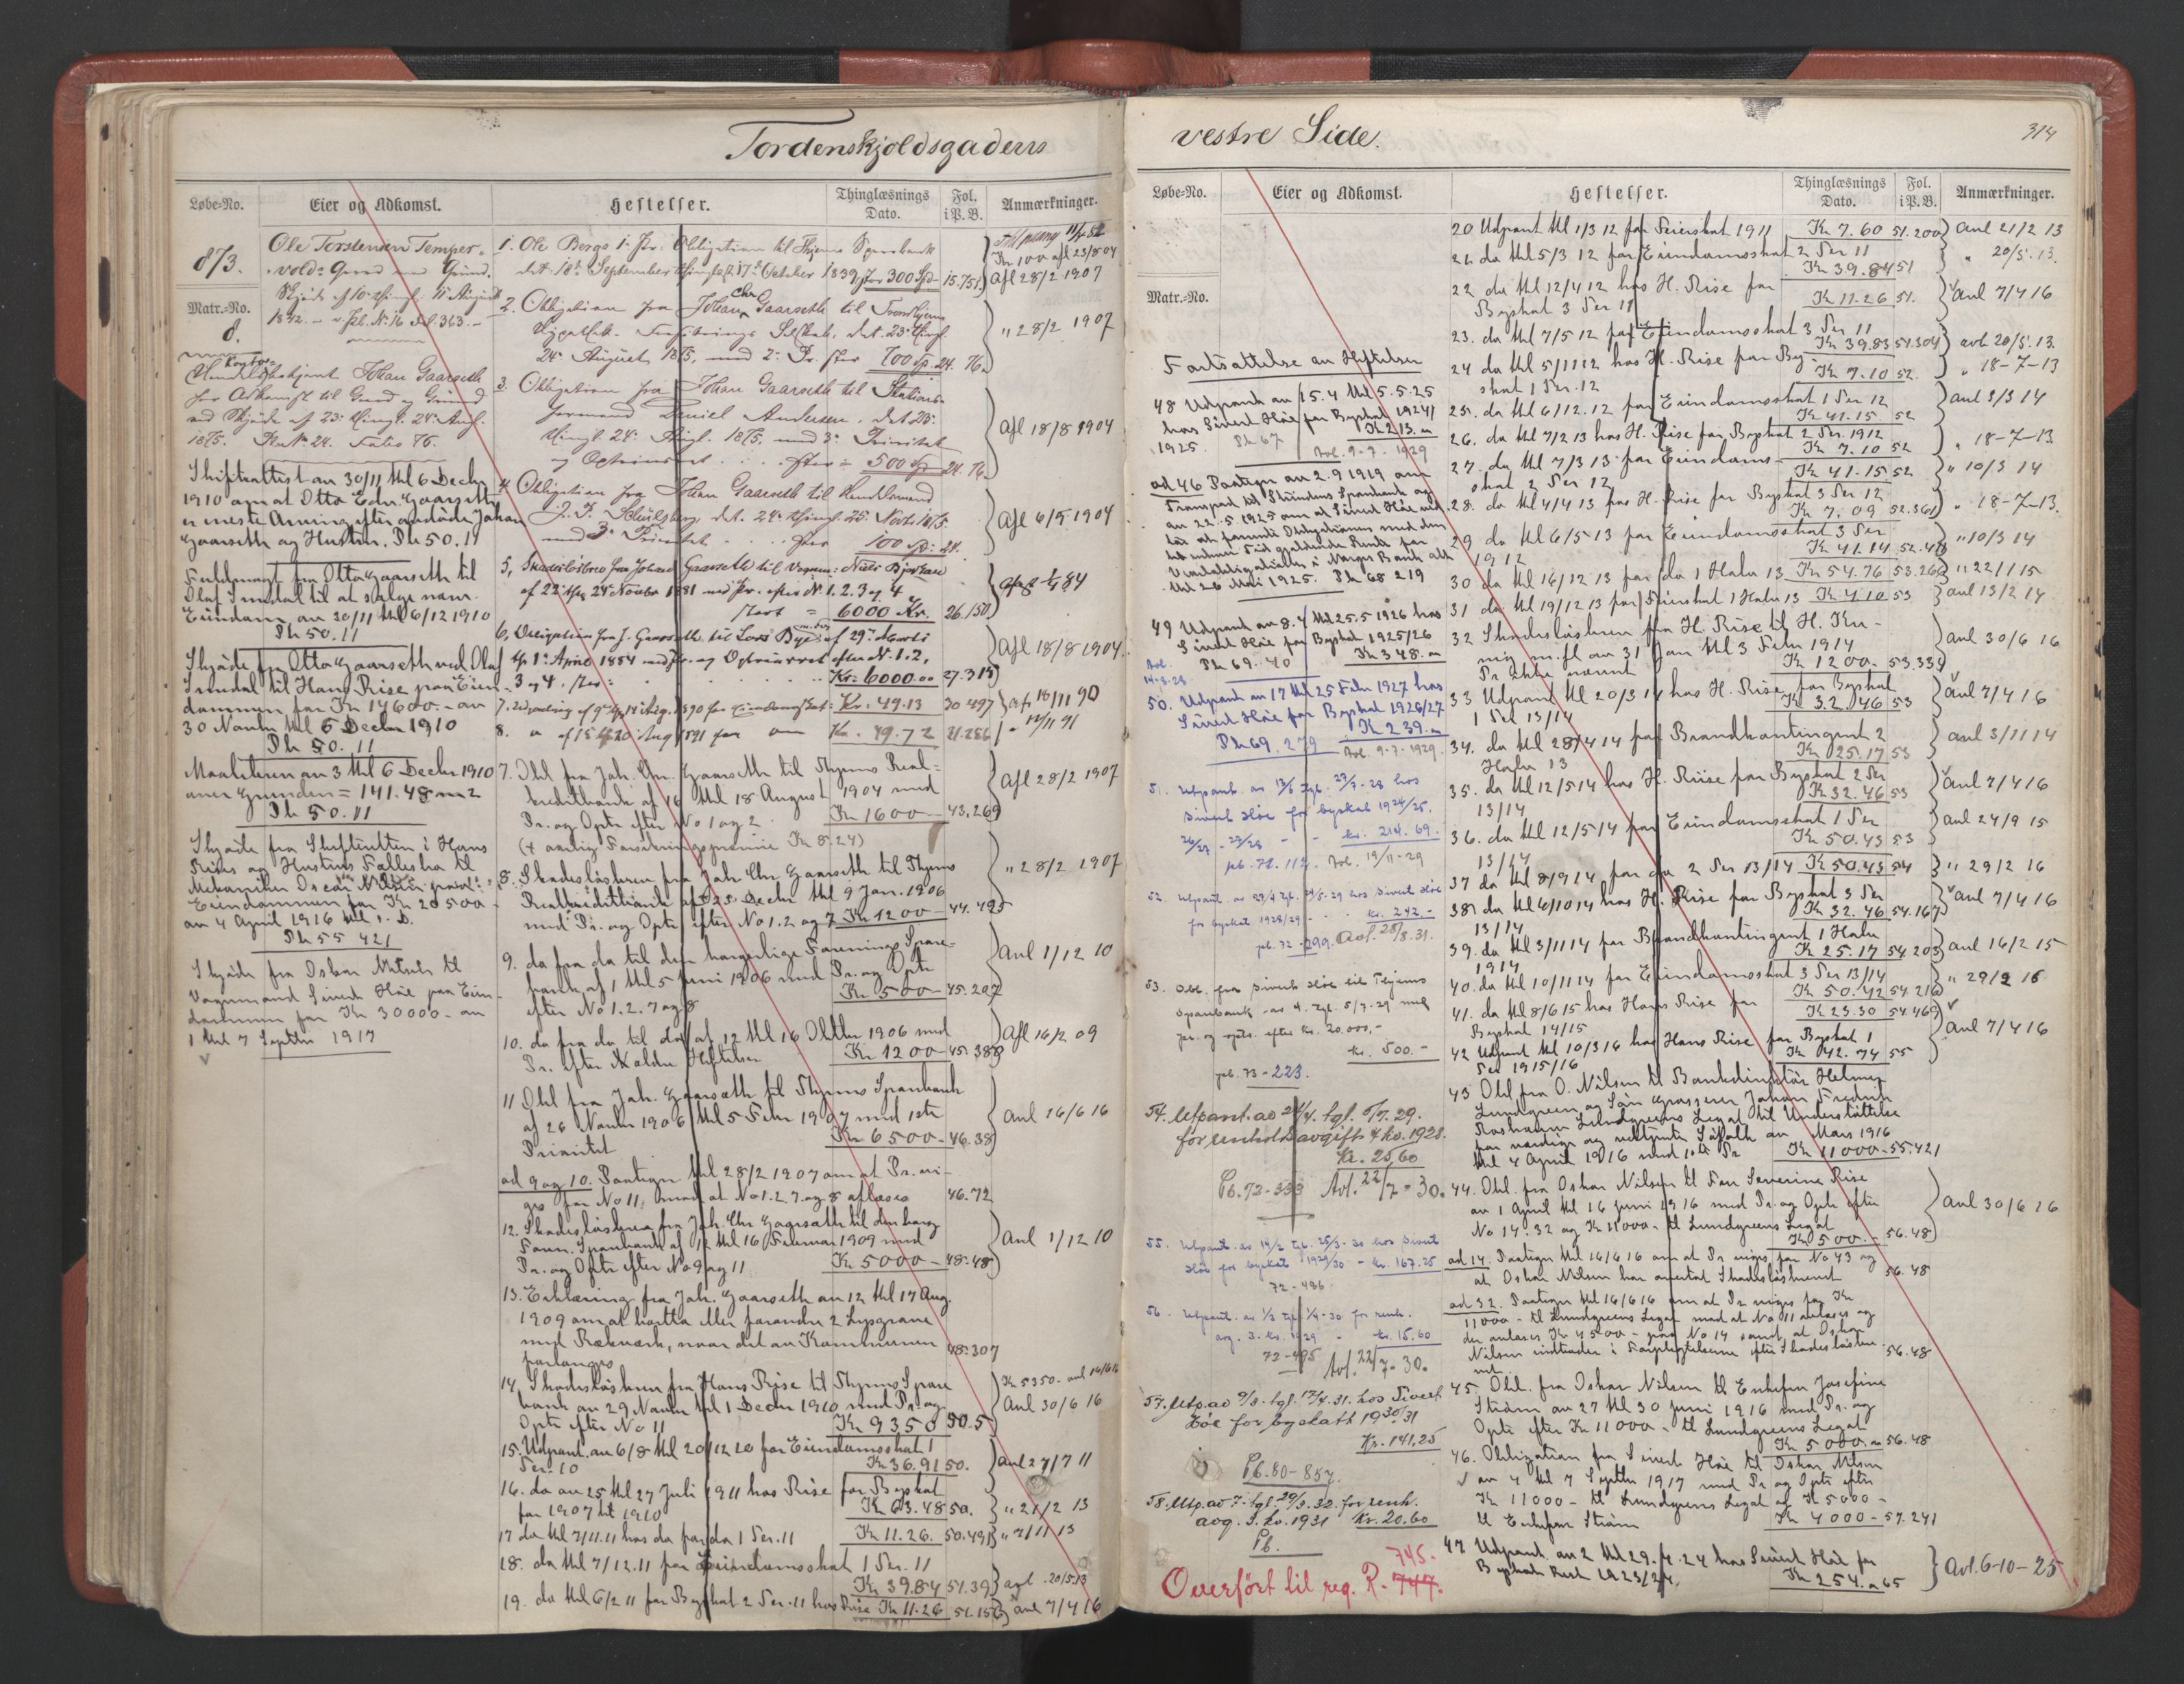 Tordenskjoldsgadens
Løbe-No.
Eier og Adkomst.
Heftelser.
Thinglæsnings Dato.
Fol. i P. B.
Anmærkninger.
873.
Matr.-No.
8.
Ole Torstensen Temper-
vold: Gaard med Grund.
Handelsbetjent Johan Gaarseth
for Adkomst til Gaard og Grund
Skifteattest an 30/11 thl 6 Decbr
1910 om at Otto Edv. Gaarseth
er eneste Arving efter afdøde Johan
Gaarseth og Hustru. Pb 50.11
Fuldmagt fra Otto Gaarseth til
Olaf Smedal til at sælge nævn.
Eiendom an 30/11 thl 6/12 1910
Pb 50.11
Skjøde fra Otto Gaarseth ved Olaf
Smedal til Hans Rise paa Eien-
dommen for Kr 14600.- an
30 Novbr thl 6 Decbr 1910
Pb 50.11
Maalebrev an 3 thl 6 Decbr 1910
over Grunden = 141.48 m2
Pb 50.11
Skjøde fra Skifteretten i Hans
Rises og Hustrus Fællesbo til
Mekaniker Oscar Nilsen paa
Eiendommen for Kr 20500-
an 4 April 1916 thl s. D.
Pb 55 421
Skjøde fra Oskar Nilsen til
Vognmand Sivert Høe paa Eien-
dommen for Kr 30000- an
1 thl 7 Septbr 1917
1. Ole Bergs 1. Pr. Obligation til Thjems Sparebank
dat: 18de September thinglæst 17de October 1839 for 300 Sp 15.751.
Kr 100 afl 23/8 04
Afl 28/2 1907
2. Obligation fra Johan Chr Gaarseth til Trondhjems
24de August 1875, med 2. Pr. for 700 Sp. 24. 76.
" 28/2 1907
3. Obligation fra Johan Gaarseth til Stations-
formand Daniel Andersen, dat 23de
thingl. 24de Augl. 1875 med 3de Prioritet
og Optrinsret . . . for = 500 Sp 24. 76.
Afl 18/8 1904
4. Obligation fra Johan Gaarseth til Handelsmand
dat. 24de thingl. 25. Novbr 1875
med 3de Prioritet . . . for 100 Sp: 24.
Afl 6/5 1904
5, Skadesløsbrev fra Johan Gaarseth til Vognm: Niels Bjerkan
af 22de thg 24de Novbr 1881 med Pr. efter Nr. 1. 2. 3 og 4
stort = 6000 Kr. 26/150
6, Obligation fra J. Gaarseth til Lars Bye af 29de Marts
thg. 1de April 1884 med Pr. og Optrinsret efter Nr. 1. 2.
3 og 4. stor: . . . . Kr: 6000 00 27.315
Afl 18/8 1904.
7. Udpantning af 9de thg 14 Aug. 1890 for Eiendomsskat: Kr. 49.13 30 497
af 18/11 90
8. " af 15 thl 20 Aug 1891 for Kr. 49.72 31.286
" 12/11 91
7. Obl fra Joh. Chr. Gaarseth til Thjems Real-
kreditbank af 16 thl 18 August 1904 med
Pr. og Optr efter No 1 og 2 Kr 1600- 43.269
(+ aarlig Forsikringspræmie Kr 8.24)
Afl 28/2 1907
8. Skadesløsbrev fra Joh Chr Gaarseth til Thjems
Realkreditbank af 23 Decbr thl 9 Jan. 1906
med Pr. og Optr efter No 1. 2 og 7 Kr 1200- 44. 495
" 28/2 1907
9. do fra do til den borgerlige Forenings Spare-
bank af 1 thl 5 Juni 1906 med Pr. og Optr
efter No 1. 2. 7 og 8 Kr 500- 45. 207
Aul 1/12 10
10. do fra do til do af 12 thl 16 Oktbr 1906 med
Pr. efter ældre Heftelser Kr 1200- 45. 388
Afl 16/2 09
11 Obl fra Joh. Gaarseth til Thjems Sparebank
af 26 Novbr 1906 thl 5 Febr 1907 med 1ste
Prioritet Kr 6500- 46.38
Aul 16/6 16
ad 9 og 10. Paategn thl 28/2 1907 om at Pr. vi-
ges for No 11, mod at No 1. 2. 7. og 8 aflæses 46.72
12. Skadesløsbrev fra Joh. Chr Gaarseth til den borg
Foren. Sparebank af 12 thl 16 Februar 1909 med
Pr. og Optr efter No 9 og 11 Kr 5000- 48.48
Aul 1/12 10
13. Erklæring fra Joh. Gaarseth an 12 thl 17 Aug.
1909 om at borttage eller forandre 2 Lysgrave
med Rækværk, naar det av Kommunen
forlanges 48.307
14. Skadesløsbrev fra Hans Rise til Thjems Spare
bank an 29 Novbr thl 1 Decbr 1910 med Pr. og
Optr efter No 11 Kr 9350 50.5
Kr 5350.- aul 16/6 16
Aul 30/6 16
15. Udpant. an 6/8 thl 20/12 10 for Eiendomsskat 1
Ser. 10 Kr 36.91 50.
Aul 27/7 11
16. do an 25 thl 27 Juli 1911 hos Rise for Byskat
for 1907 til 1910 Kr 63.48 50.
" 21/2 13
17 do thl 7/11.11 hos do for do 1 Ser. 11 Kr 11.26. 50.491
" 7/11 13
18. do thl 7/12.11 for Eiendomsskat 1 Ser. 11
Kr 39.84 51.39
avl. 20/5.13
19. do thl 6/2 11 for Byskat 2 Ser. 11 hos Rise Kr 11.26 51.156
aul 7/4 16
vestre Side.
314
Løbe-No.
Eier og Adkomst.
Heftelser.
Thinglæsnings Dato.
Fol. i P. B.
Anmærkninger.
Matr.-No.
Fortsættelse an Heftelser
48 Udpant. an 15.4 thl 5.5.25
hos Sivert Høe for Byskat 1924/
1925. Pb 67 Kr 213.
Avl. 9-7-1929
ad 46 Paategn an 2.9 1919 om
Transport til Strindens Sparebank og
an 22.5.1925 om at Sivert Høe
thl 26 Mai 1925. Pb 68 219
49 Udpant an 8.4 thl 25.5 1926 hos
Sivert Høe for Byskat 1925/26
Pb 69. 40 Kr 348.
50. Udpant an 17 thl 25 Febr 1927 hos
Sivert Høe for Byskat 1926/27
Kr 239.
Pb 69. 279 Avl. 9-7-1929.
51. Utpant. av 13/2 tgl. 23/3-28 hos
Sivert Høe for byskat 1924/25,
26/27 - 27/28 - - kr. 214.69.
pb. 71. 112. Avl. 19/11-29
52. Utpant. av 29/4 tgl. 24/5-29 hos Sivert Høe
for byskat 1928/29 - - kr. 242.-
pb. 72-299. Avl. 28/8.31.
53. Obl. fra Sivert Høe til Thjems
Sparebank av 4. tgl. 5/7.29 med
pr. og oppr. efter kr. 20.000,-
kr. 500.-
pb. 73-223.
54. Utpant. av 24/4. tgl. 5/7. 29.
for renholdsavgift 4 kv. 1928.
Kr. 25,60
Pb. 72-333 Avl. 22/7-30.
55. Utpant. av 14/2 tgl. 25/3-30 hos Sivert
Høe for byskat 1929/30 - kr. 167.25
72-486
56. Utpant. av 1/3 tgl. 1/4-30 for renh.
avg. 3. kv. 1929 - kr. 15.60
72-495 Avl. 22/7-30.
57. Utp. av 9/3. tgl. 17/4. 31. hos Sivert
Høe for byskatt 1930/31
Kr. 141,25
Pb. 80-857.
58. Utp. av 7. tgl 29/3. 32. for renh.
avg. 3. kv. 1931 Kr. 20.60
Pb.
745.
Overført til reg. P. 747.
20 Udpant thl 1/3 12 for Seierskat 1911 Kr 7.60 51.200
aul 21/2 13
21. do thl 5/3 12 for Eiendomsskat 2 Ser 11
Kr 39.84 51
" 20/5.13.
22 do thl 12/4 12 hos H. Rise for
Byskat 3 Ser 11 Kr 11.26 51.
aul 7/4 16
23. do thl 7/5 12 for Eiendomsskat 3 Ser 11
Kr 39.83 51.304
avl 20/5.13.
24 do thl 5/11 12 hos H. Rise for By-
skat 1 Ser. 12 Kr 7.10 52.
" 18-7-13
25. do thl 6/12.12 for Eiendomsskat 1 Ser 12
Kr 41.15 52
aul 3/3 14
26. do thl 7/2 13 hos H. Rise for Byskat 2 Ser. 1912
Kr 7.10 52
" 18-7-13
27. do thl 7/3 13 for Eiendoms-
skat 2 Ser 12 Kr 41.15 52
" 10/3 14
28. do thl 4/4 13 hos H. Rise for Byskat 3 Ser 12
Kr 7.09 52.361
" 18-7-13.
29 do thl 6/5 13 for Eiendomsskat 3 Ser
1912 Kr 41.14 52.
" 10/3 14
30 do thl 16/12 13 for do 1 Halv 13 Kr 54.76 53.
" 22/1 15
31 do thl 19/12 13 for Seierskat 1 Halv 13 Kr 4.10 53
aul 13/2 14
32 Skadesløsbrev fra H. Rise til H. Kre-
an 31 Jan thl 3 Febr 1914
Pr ikke nævnt Kr 1200- 53.339
aul 30/6 16
33 Udpant thl 20/3 14 hos H. Rise for Byskat
1 Ser 13/14 Kr 32.46 53
aul 7/4 16
34. do thl 28/4 14 for Brandkontingent 2
Halv 13 Kr 25.17 53
aul 3/11 14
35. do thl 12/5 14 hos H. Riise for Byskat 2 Ser
13/14 Kr 32.46 53
aul 7/4 16
36. do thl 12/5 14 for Eiendomsskat 1 Ser
13/14 Kr 50.43 53
aul 24/9 15
37 do thl 8/9 14 for do 2 Ser 13/14 Kr 50.43 54
" 29/2 16
38. do thl 6/10 14 hos H. Rise for Byskat 3 Ser
13/14 Kr 32.46 54.167
aul 7/4 16
39. do thl 3/11 14 for Brandkontingent 1 Halv
1914 Kr 25.17 54 203
aul 16/2 15
40. do thl 10/11 14 for Eiendomsskat 3 Ser 13/14
Kr 50.42 54 216
" 29/2 16
41. do thl 8/6 15 hos Hans Rise for
Byskat 14/15 Kr 23.30 54 469
42 Udpant thl 10/3 16 hos Hans Rise for Byskat 1
Ser 1915/16 Kr 42.74 55
aul 7/4 16
43 Obl fra O. Nilsen til Bankdirektør Helmer
Lundgreen og Søn Grosserer Johan Fredrik
Roshauw Lundgreens Legat til Understøttelse
for værdige og trængende Søfolk an Mars 1916
thl 4 April 1916 med 1ste Pr Kr 11000- 55.421
44. Obl. fra Oskar Nilsen til Fru Severine Rise
an 1 April thl 16 Juni 1916 med Pr. og Optr efter
No 14. 32 og Kr 11000- til Lundgreens Legat
Kr 500.- 56.48
aul 30/6 16
ad 14. Paategn thl 16/6 16 om at Pr viges for No 43 og
at Oskar Nilsen har overtat Skadesløsbrevet 56.48
ad 32. Paategn thl 16/6 16 om at Pr viges for Kr
11000- til Lundgreens Legat mod at No 11 avlæses og
der avlæses Kr 4500- paa No 14 samt at Oskar
Nilsen indtræder i Forpligtelserne efter Skadesløsbre-
vet 56.48
45. Obl. fra Oskar Nilsen til Enkefru Josefine
Strøm an 27 thl 30 Juni 1916 med Pr. og
Optr efter Kr 11000- til Lundgreens Legat
Kr 5000.- 56.48
46. Obligation fra Sivert Høe til Oskar Nilsen
an 4 thl 7 Septbr 1917 med Pr og Optr efter
Kr 11000- til Lundgreens Legat og Kr 5000-
til Enkefru Strøm Kr 4000- 57.241
47 Udpant. an 2 thl 29.4.24 hos Sivert Høe for
Byskat Rest 1923/24. Kr 254. 65
Avl. 6-10-25